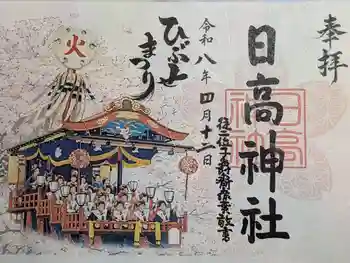 奉拝
日高神社
日高神社
令和八年四月十二日
ひぶせ
まつり
火